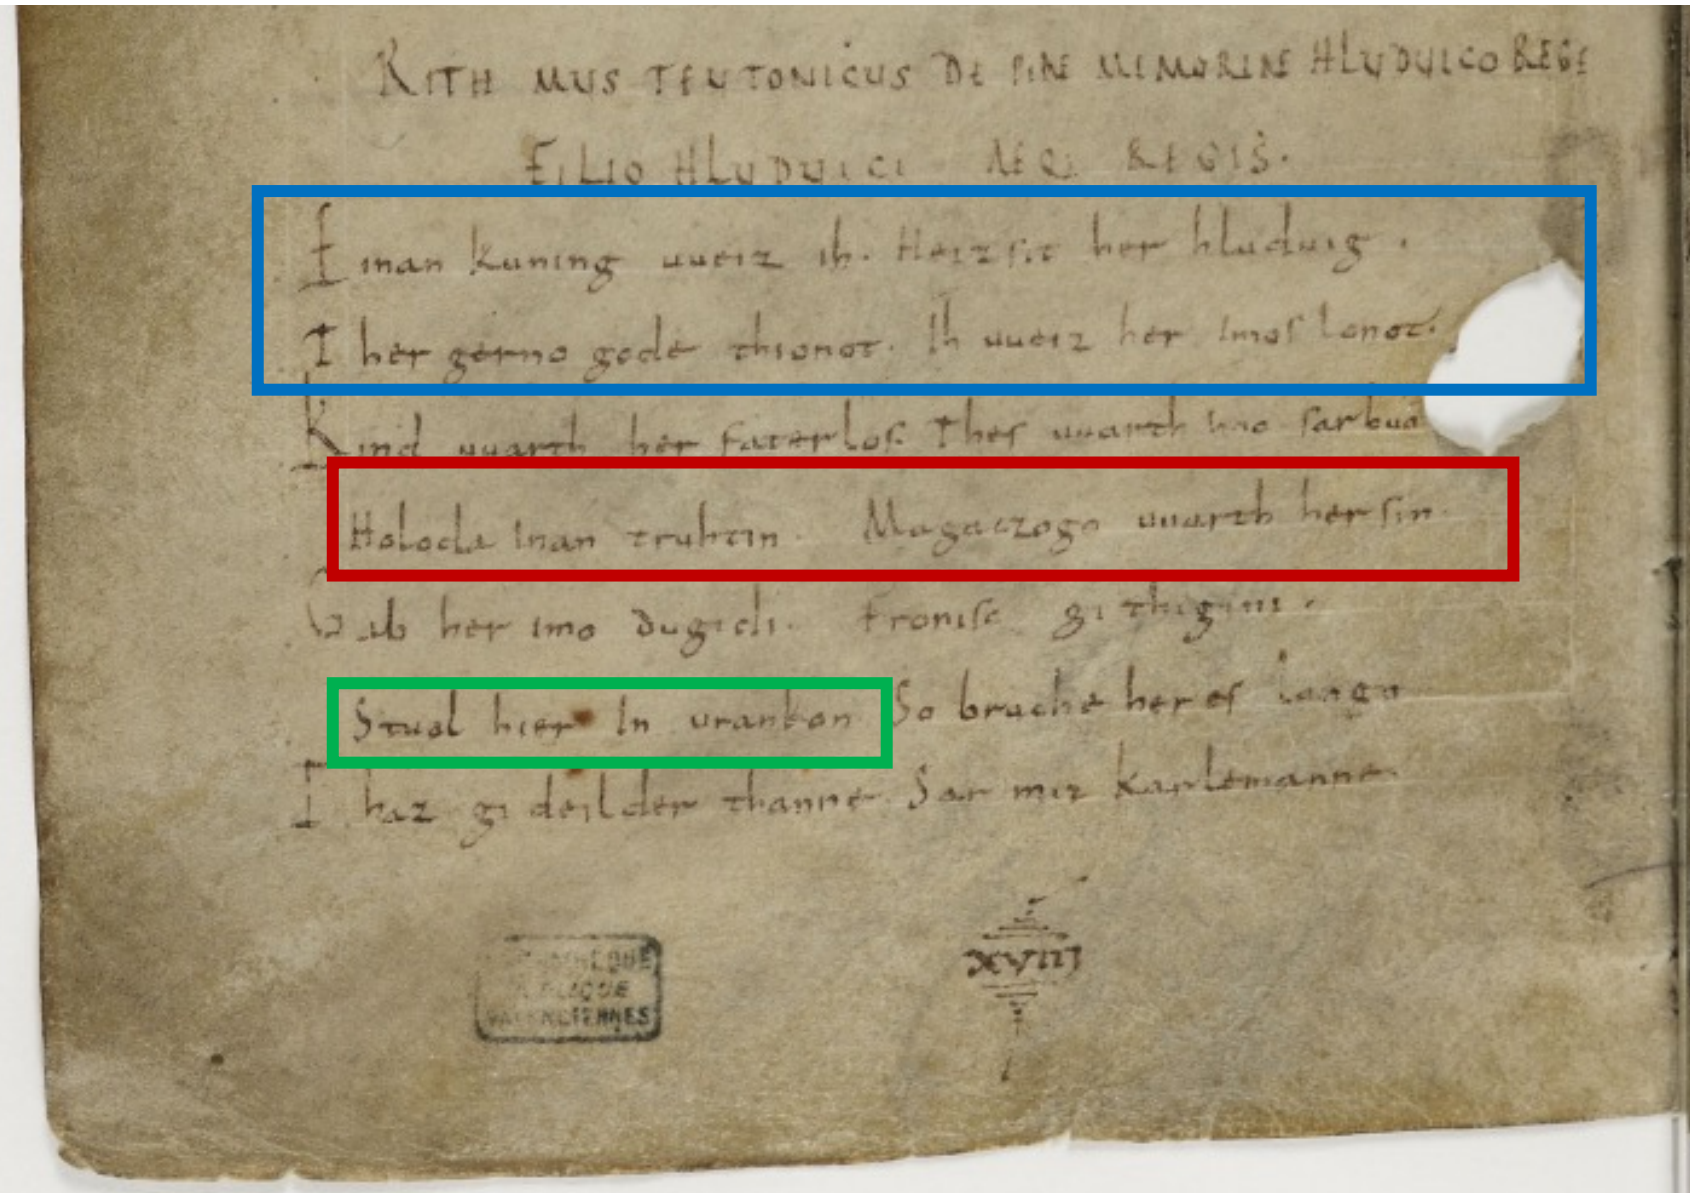 RITHMUS TEUTONICUS DE PIAE MEMORIAE HLUDUICO REGE
FILIO HLUDUICI AEQ; REGIS.
Einan kuning uueiz ih. Heizsit her hluduig.
Ther gerno gode thionot. Ih uueiz her imos lonot.
Kind uuarth her faterlos. Thes uuarth imo sar buo
Holoda inan truhtin. Magaczogo uuarth her sin.
Gab her imo dugidi. Fronisc githigini.
Stual hier in urankon. So bruche her es lango.
Thaz gideilder thanne. Sar mit karlemanne.
XVIII
BIBLIOTHEQUE
PUBLIQUE
VALENCIENNES